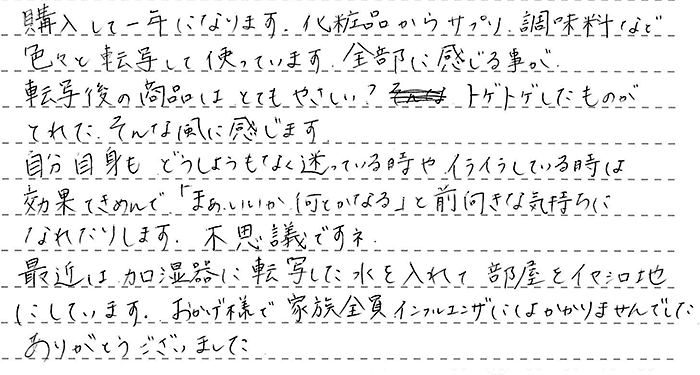 購入して一年になります。化粧品からサプリ、調味料など
色々と転写して使っています。全部に感じる事が、
転写後の商品はとてもやさしい？トゲトゲしたものが
とれた、そんな風に感じます。
自分自身も どうしようもなく迷っている時や イライラしている時は
効果てきめんで「まぁ、いいか、何とかなる」と前向きな気持ちに
なれたりします。不思議ですネ。
最近は 加湿器に転写した水を入れて 部屋をイヤシロ地
にしています。おかげ様で 家族全員インフルエンザにはかかりませんでした
ありがとうございました